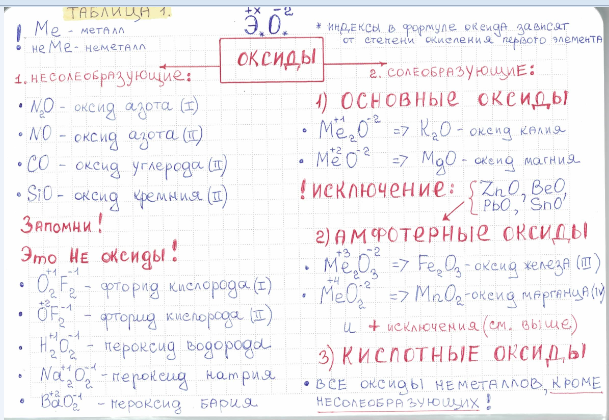 ТАБЛИЦА 1.
! Ме - металл
! неМе - неметалл
+x -2
Э.O.
* индексы в формуле оксида зависят
от степени окисления первого элемента
ОКСИДЫ
1. НЕСОЛЕОБРАЗУЮЩИЕ:
• N₂O - оксид азота (I)
• NO - оксид азота (II)
• CO - оксид углерода (II)
• SiO - оксид кремния (II)
Запомни!
Это НЕ оксиды!
• O₂⁺¹F₂⁻¹ - фторид кислорода (I)
• O⁺²F₂⁻¹ - фторид кислорода (II)
• H₂⁺¹O₂⁻¹ - пероксид водорода
• Na₂⁺¹O₂⁻¹ - пероксид натрия
• Ba⁺²O₂⁻¹ - пероксид бария
2. СОЛЕОБРАЗУЮЩИЕ:
1) ОСНОВНЫЕ ОКСИДЫ
• Me₂⁺¹O⁻² => K₂O - оксид калия
• Me⁺²O⁻² => MgO - оксид магния
! ИСКЛЮЧЕНИЕ: { ZnO, BeO,
PbO, SnO
2) АМФОТЕРНЫЕ ОКСИДЫ
• Me₂⁺³O₃⁻² => Fe₂O₃ - оксид железа (III)
• Me⁺⁴O₂⁻² => MnO₂ - оксид марганца (IV)
и + исключения (см. выше)
3) КИСЛОТНЫЕ ОКСИДЫ
• ВСЕ ОКСИДЫ НЕМЕТАЛЛОВ, КРОМЕ
НЕСОЛЕОБРАЗУЮЩИХ!